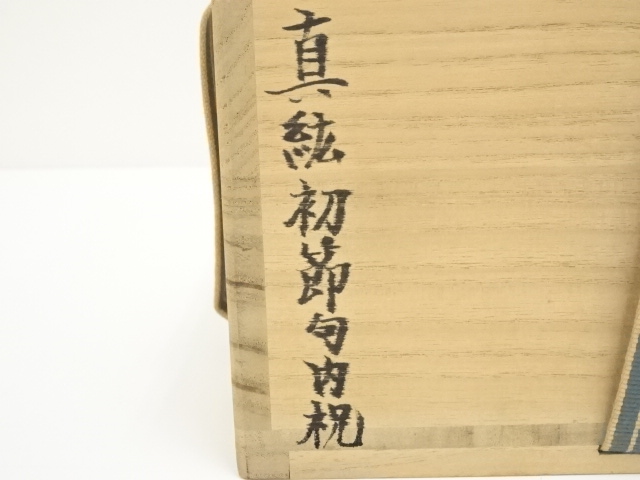 真紘初節句内祝